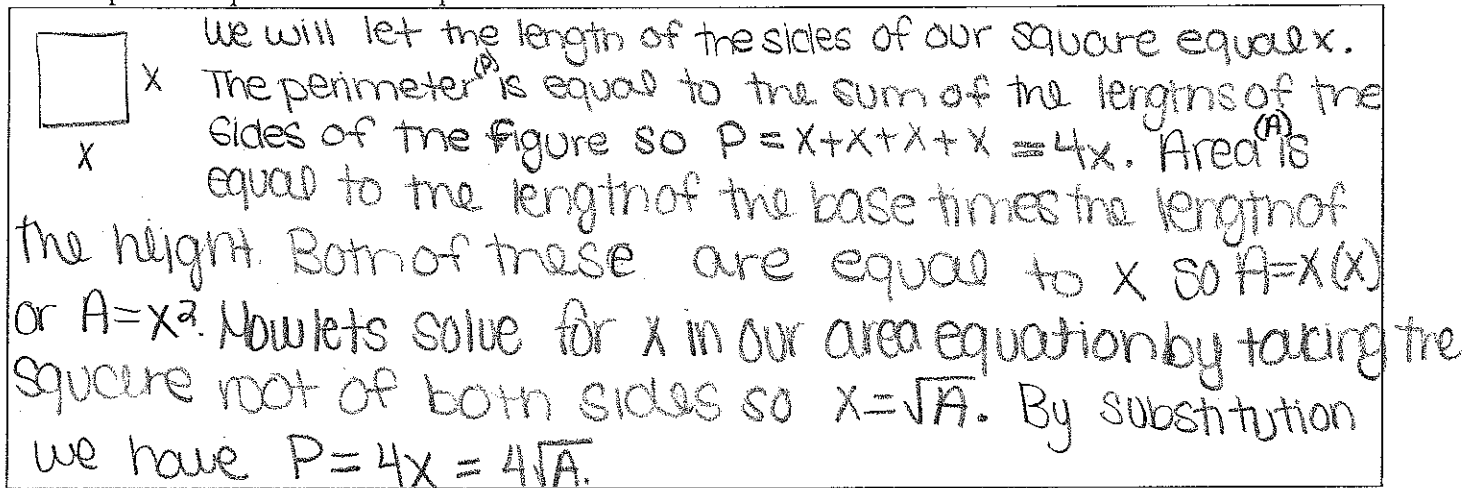 We will let the length of the sides of our square equal x.
x The perimeter (P) is equal to the sum of the lengths of the
x sides of the figure so P = x+x+x+x = 4x. Area (A) is
equal to the length of the base times the length of
the height. Both of these are equal to x so A=x(x)
or A=x². Now lets solve for x in our area equation by taking the
square root of both sides so x=√A. By substitution
we have P=4x = 4√A.